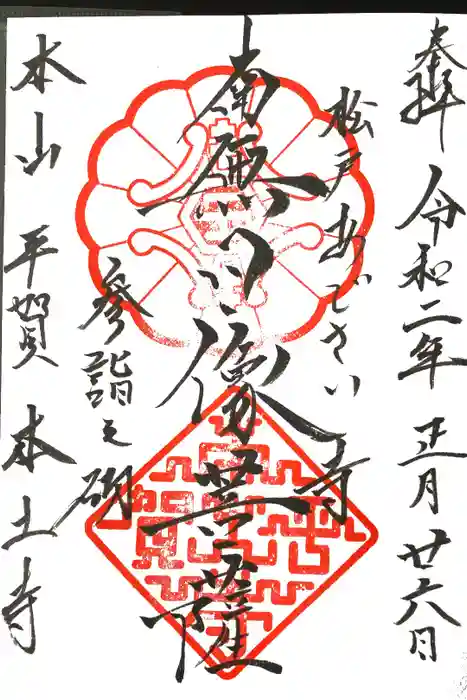 奉拝 令和二年 正月廿六日
松戸あぢさい寺
南無日像菩薩
參詣之砌
本山 平賀 本土寺